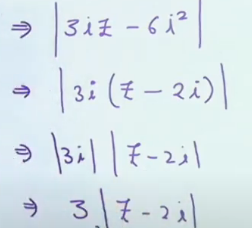 ⇒ |3iz - 6i²|
⇒ |3i (z - 2i)|
⇒ |3i| |z - 2i|
⇒ 3 |z - 2i|